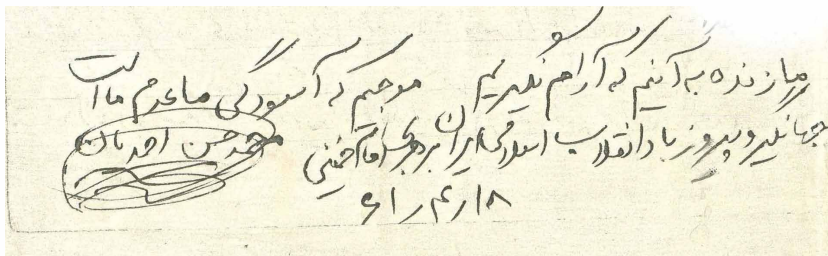 ما زنده به آنیم که آرام نگیریم موجیم که آسودگی ما عدم ماست
جهانگیر و پیروز باد انقلاب اسلامی ایران برهبری امام خمینی محمد حسن احمدیان
۶۱/۴/۱۸